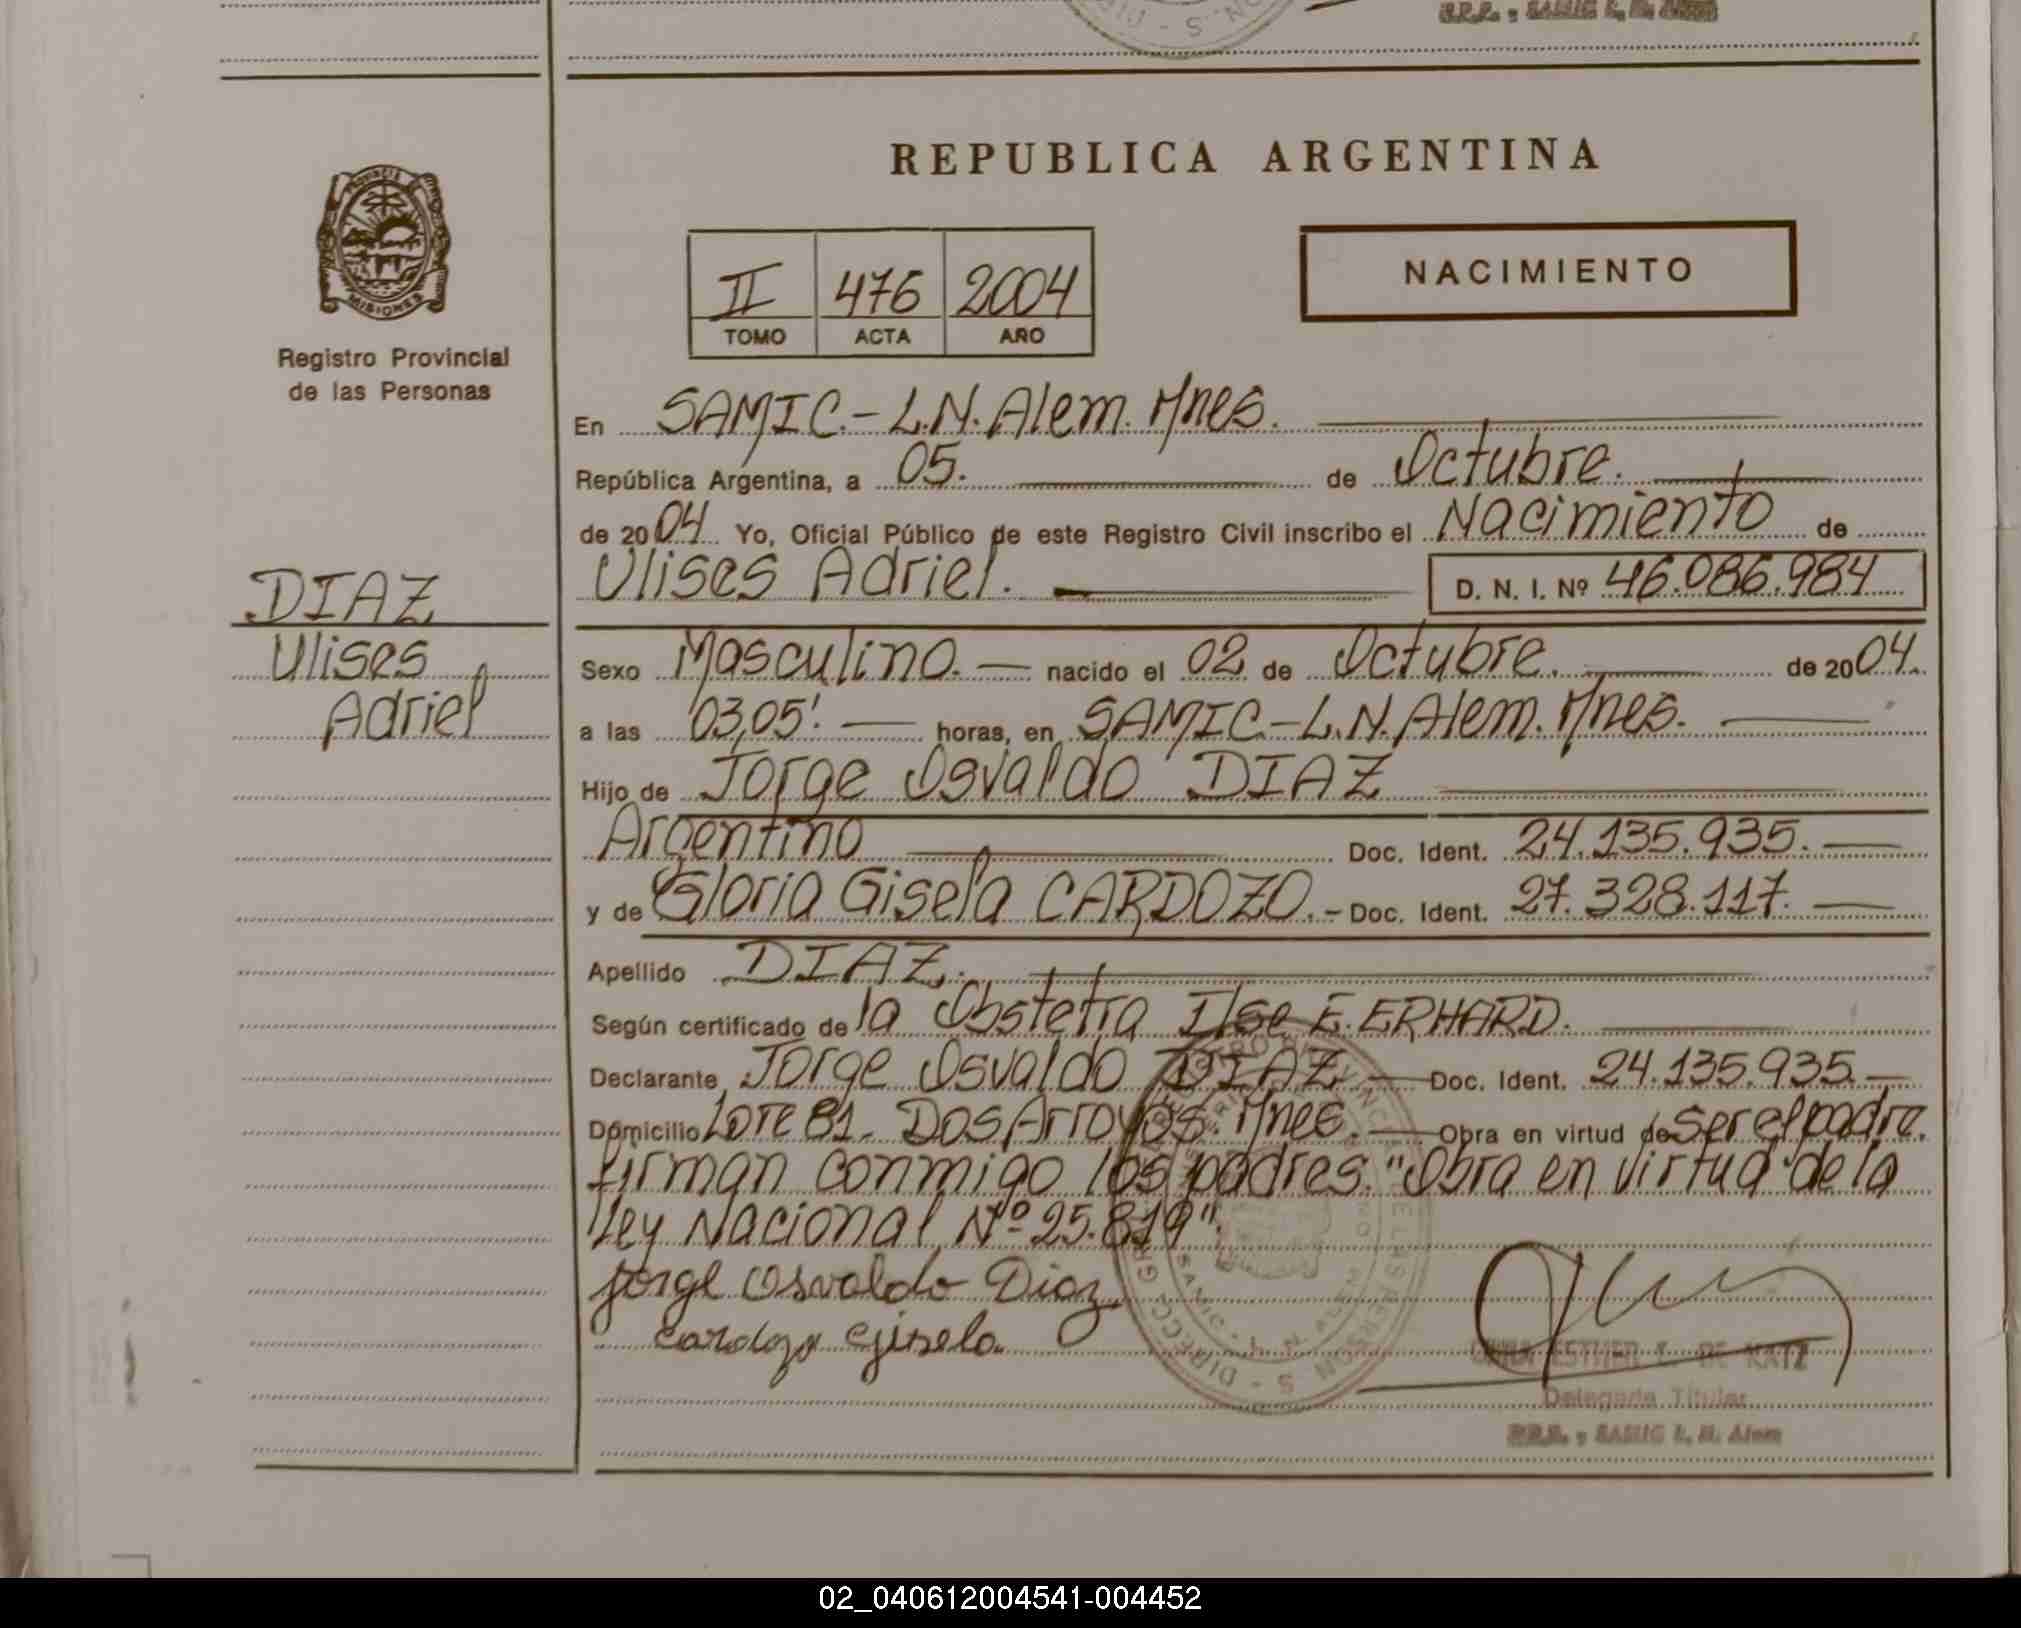 R.P.P. y SAMIC L. N. Alem
REPUBLICA ARGENTINA
PROVINCIA DE
MISIONES
Registro Provincial
de las Personas
II 476 2004
TOMO ACTA AÑO
NACIMIENTO
En SAMIC.- L.N. Alem. Mnes.
República Argentina, a 05. de Octubre.
de 2004 Yo, Oficial Público de este Registro Civil inscribo el Nacimiento de
Ulises Adriel. D. N. I. Nº 46.086.984
DIAZ
Ulises
Adriel
Sexo Masculino. nacido el 02 de Octubre. de 2004.
a las 03,05'. horas, en SAMIC.- L.N. Alem. Mnes.
Hijo de Jorge Osvaldo DIAZ
Argentino Doc. Ident. 24.135.935.
y de Gloria Gisela CARDOZO.- Doc. Ident. 27.328.117.
Apellido DIAZ.
Según certificado de la Obstetra Ilse E. ERHARD.
Declarante Jorge Osvaldo DIAZ Doc. Ident. 24.135.935.
Domicilio Lote 81- Dos Arroyos. Mnes. Obra en virtud de ser el padre.
firman conmigo los padres. "Obra en virtud de la
Ley Nacional Nº 25.819".
Jorge Osvaldo Diaz
Cardozo Gisela
ESTHER DE KATZ
Delegada Titular
R.P.P. y SAMIC L. N. Alem
02_040612004541-004452